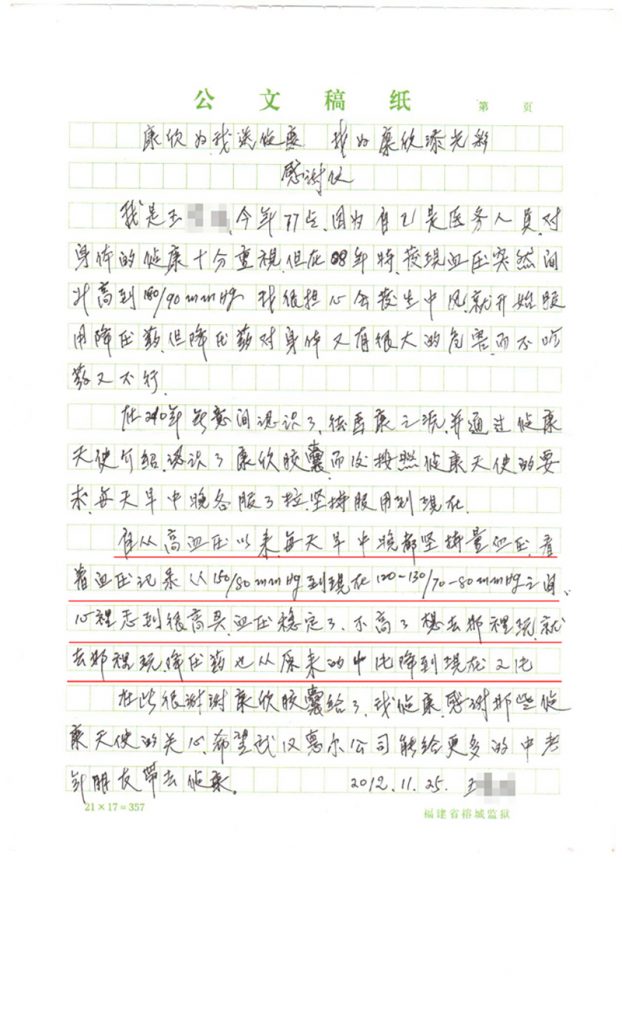 公文稿纸
第 页
康欣为我送健康 我为康欣添光彩
感谢信
我是王 今年77岁,因为自己是医务人员,对
身体的健康十分重视,但在08年时,发现血压突然间
升高到180/90mmHg 我很担心会发生中风,就开始服
用降压药,但降压药对身体又有很大的危害,而不吃
药又不行.
在2010年 间认识了 康之 并通过健康
天使介绍,认识了康欣胶囊,而后按照健康天使的要
求,每天早中晚各服3粒,坚持服用到现在.
自从高血压以来,每天早中晚都坚持量血压,看
着血压记录从150/80mmHg到现在120-130/70-80mmHg之间,
心裡感到很高兴,血压稳定了,不高了想去那裡玩,就
去那裡玩,降压药也从原来的 降到现在
在此很谢谢康欣胶囊给了我健康,感谢那些健
康天使的关心,希望武汉惠尔公司能给更多的中老
年朋友带去健康。 2012.11.25. 王
21×17=357
福建省榕城监狱